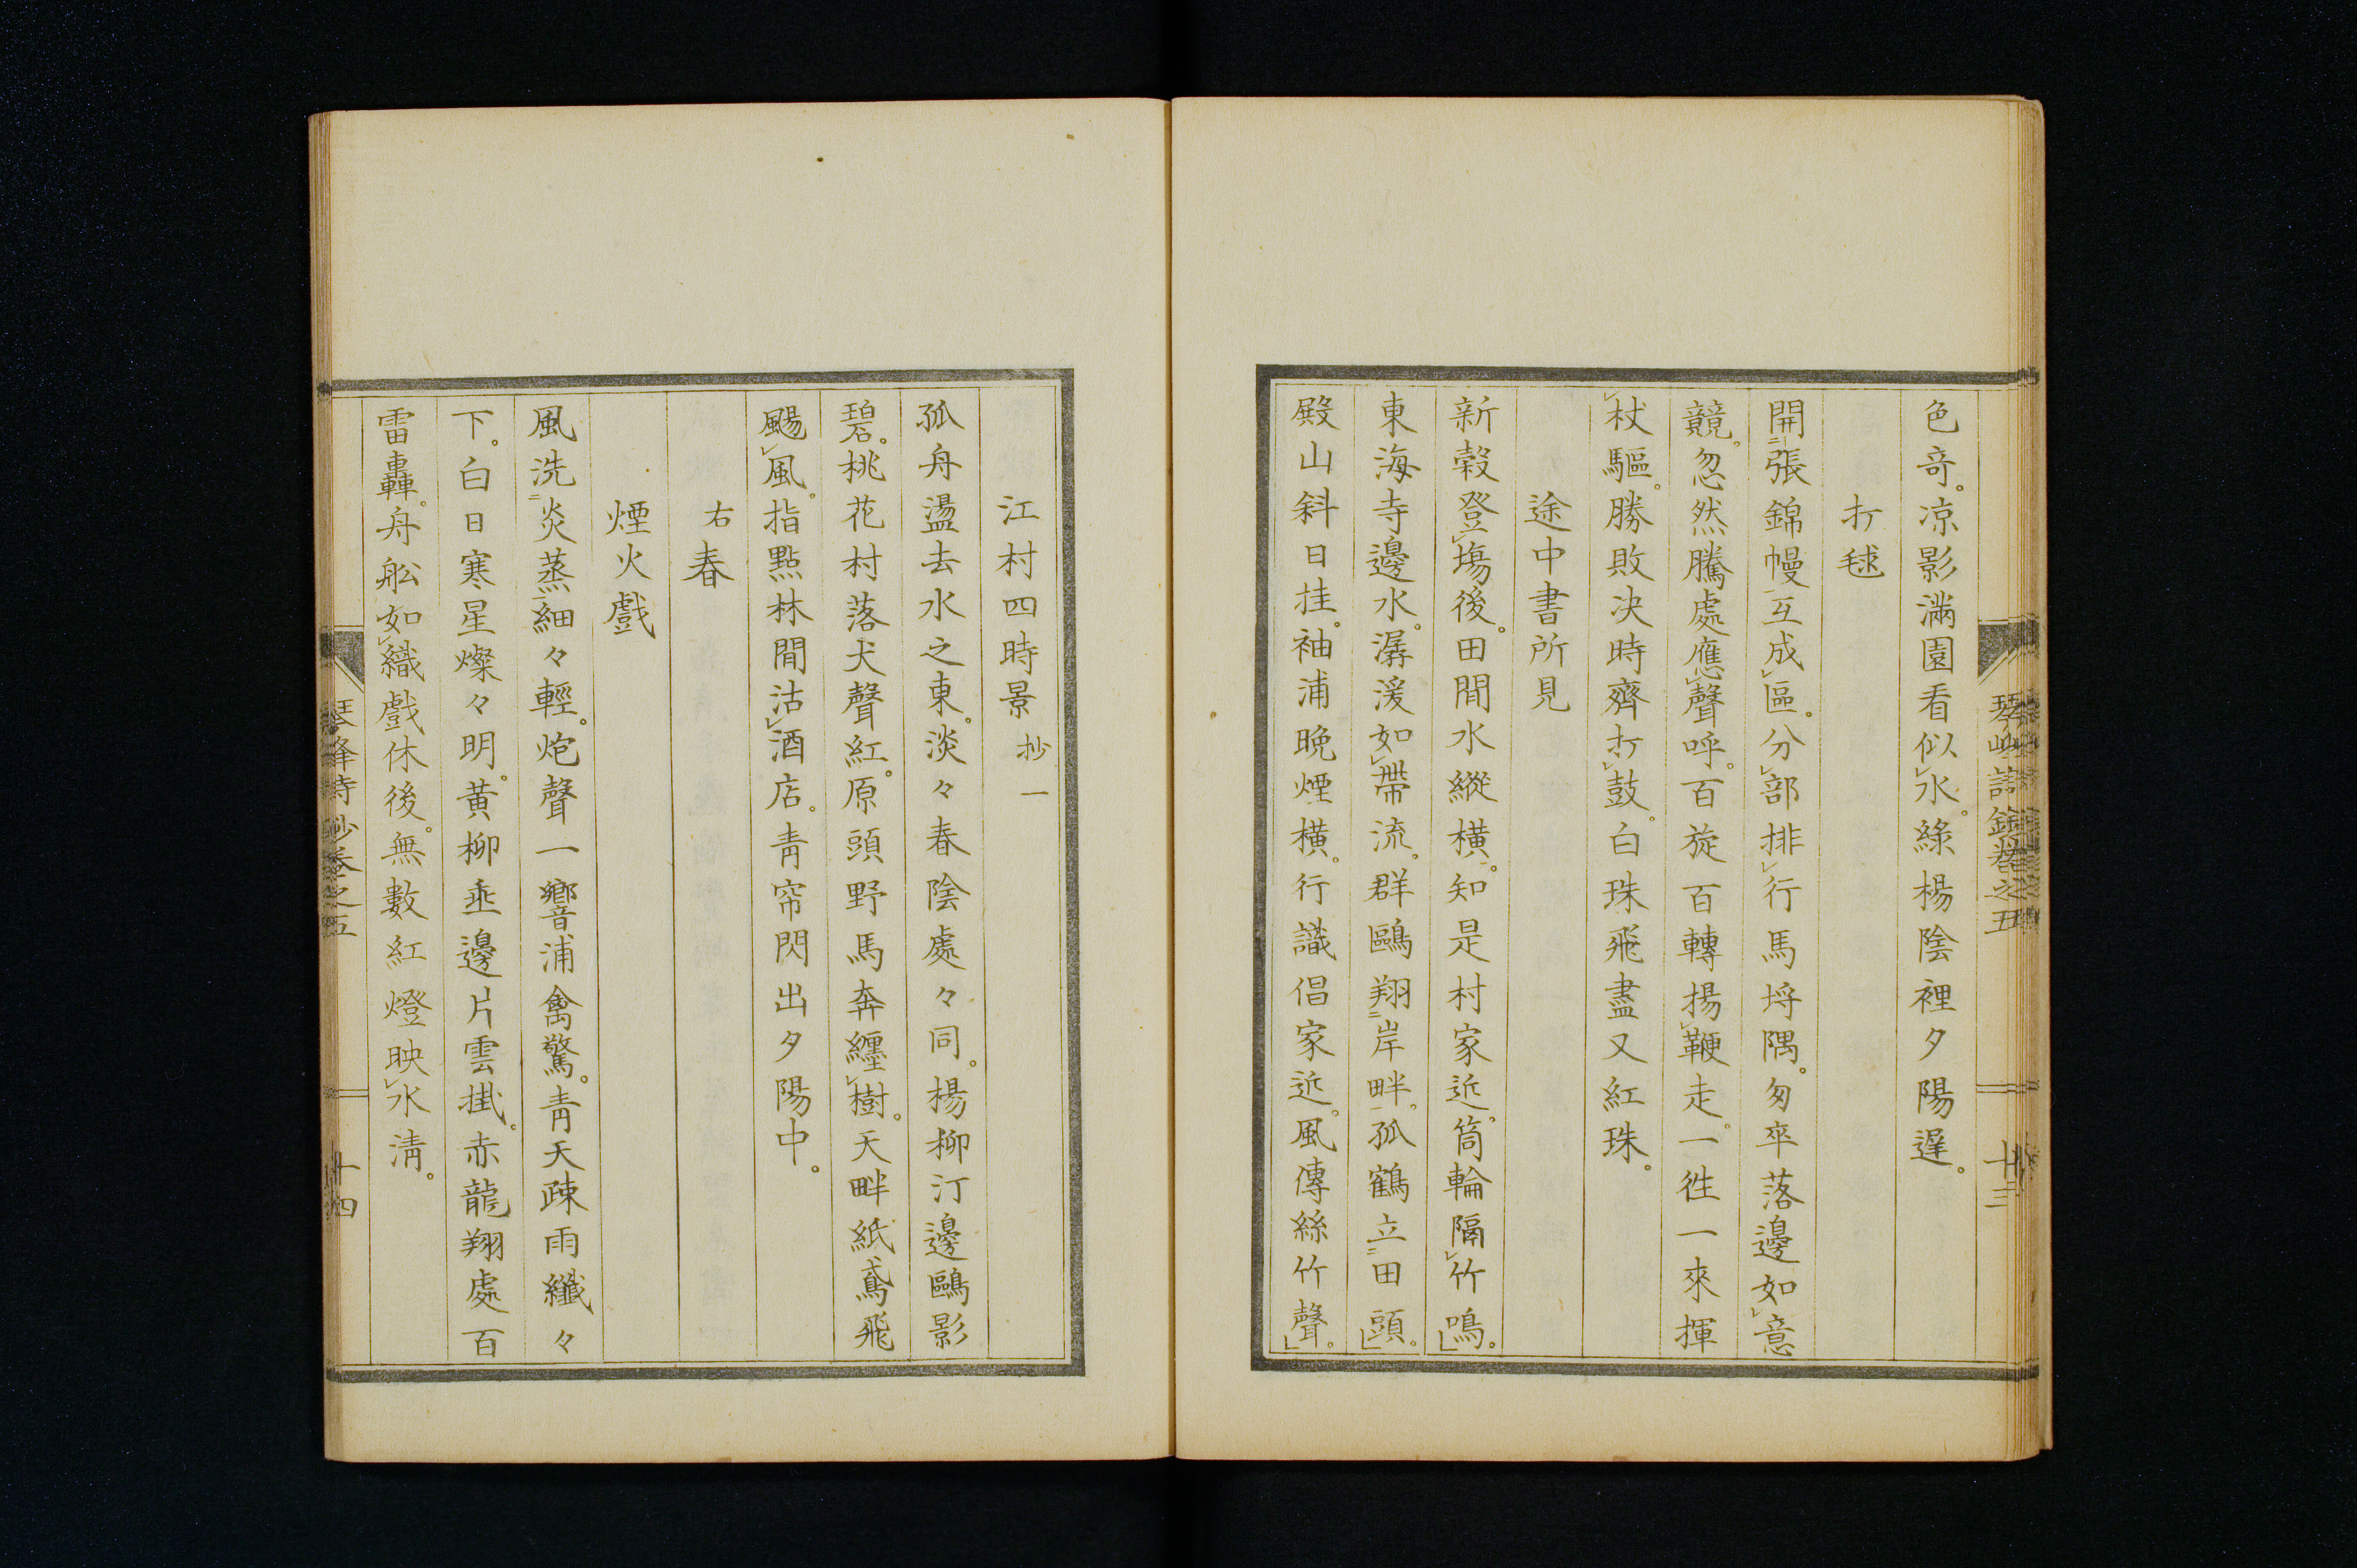 色奇。凉影滿園看似水。綠楊陰裡夕陽遲。
打毬
開張錦幔互成區。分部排行馬埒隅。匆卒落邊如意
競。忽然騰處應聲呼。百旋百轉揚鞭走。一徃一來揮
杖驅。勝敗決時齊打鼓。白珠飛盡又紅珠。
途中書所見
新穀登場後。田間水縱橫。知是村家近。筒輪隔竹鳴。
東海寺邊水。潺湲如帶流。群鷗翔岸畔。孤鶴立田頭。
殿山斜日挂。袖浦晚煙橫。行識倡家近。風傳絲竹聲。
十三
江村四時景 抄一
孤舟盪去水之東。淡々春陰處々同。楊柳汀邊鷗影
碧。桃花村落犬聲紅。原頭野馬奔纏樹。天畔紙鳶飛
颺風。指點林間沽酒店。青帘閃出夕陽中。
右春
煙火戲
風洗炎蒸細々輕。炮聲一響浦禽驚。青天疎雨纖々
下。白日寒星燦々明。黃柳垂邊片雲掛。赤龍翔處百
雷轟。舟舩如織戲休後。無數紅燈映水清。
琴峰詩鈔卷之五
十四